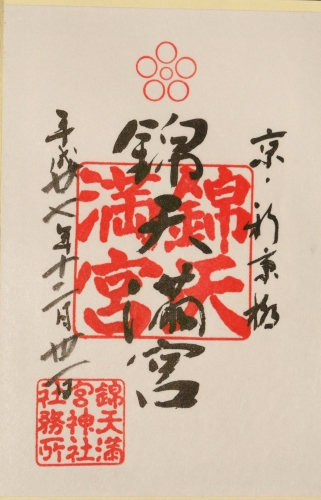 京・新京極
錦天満宮
錦天
満宮
平成廿八年十二月廿一日
錦天満
宮神社
社務所